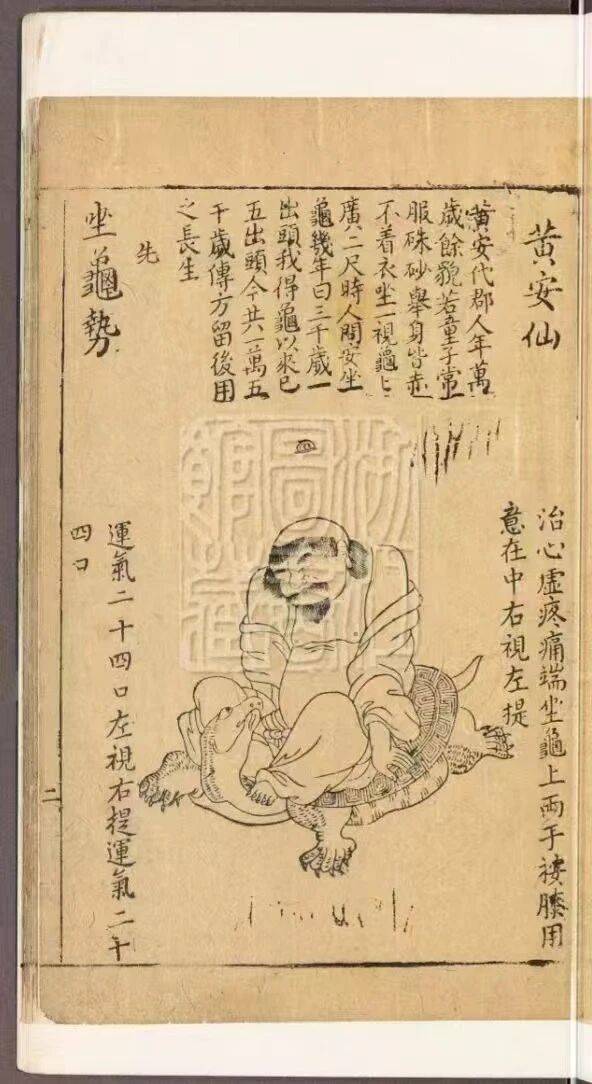 黃安仙
黃安代郡人年萬
歲餘貌若童子常
服硃砂舉身皆赤
不着衣坐一視龜上
廣二尺時人問安坐
龜幾年曰三千歲一
出頭我得龜以來已
五出頭今共一萬五
千歲傳方留後用
之長生
先
坐龜勢
治心虛疼痛端坐龜上兩手褸膝用
意在中右視左提
運氣二十四口左視右提運氣二十
四口
二
浙江
圖書
館藏